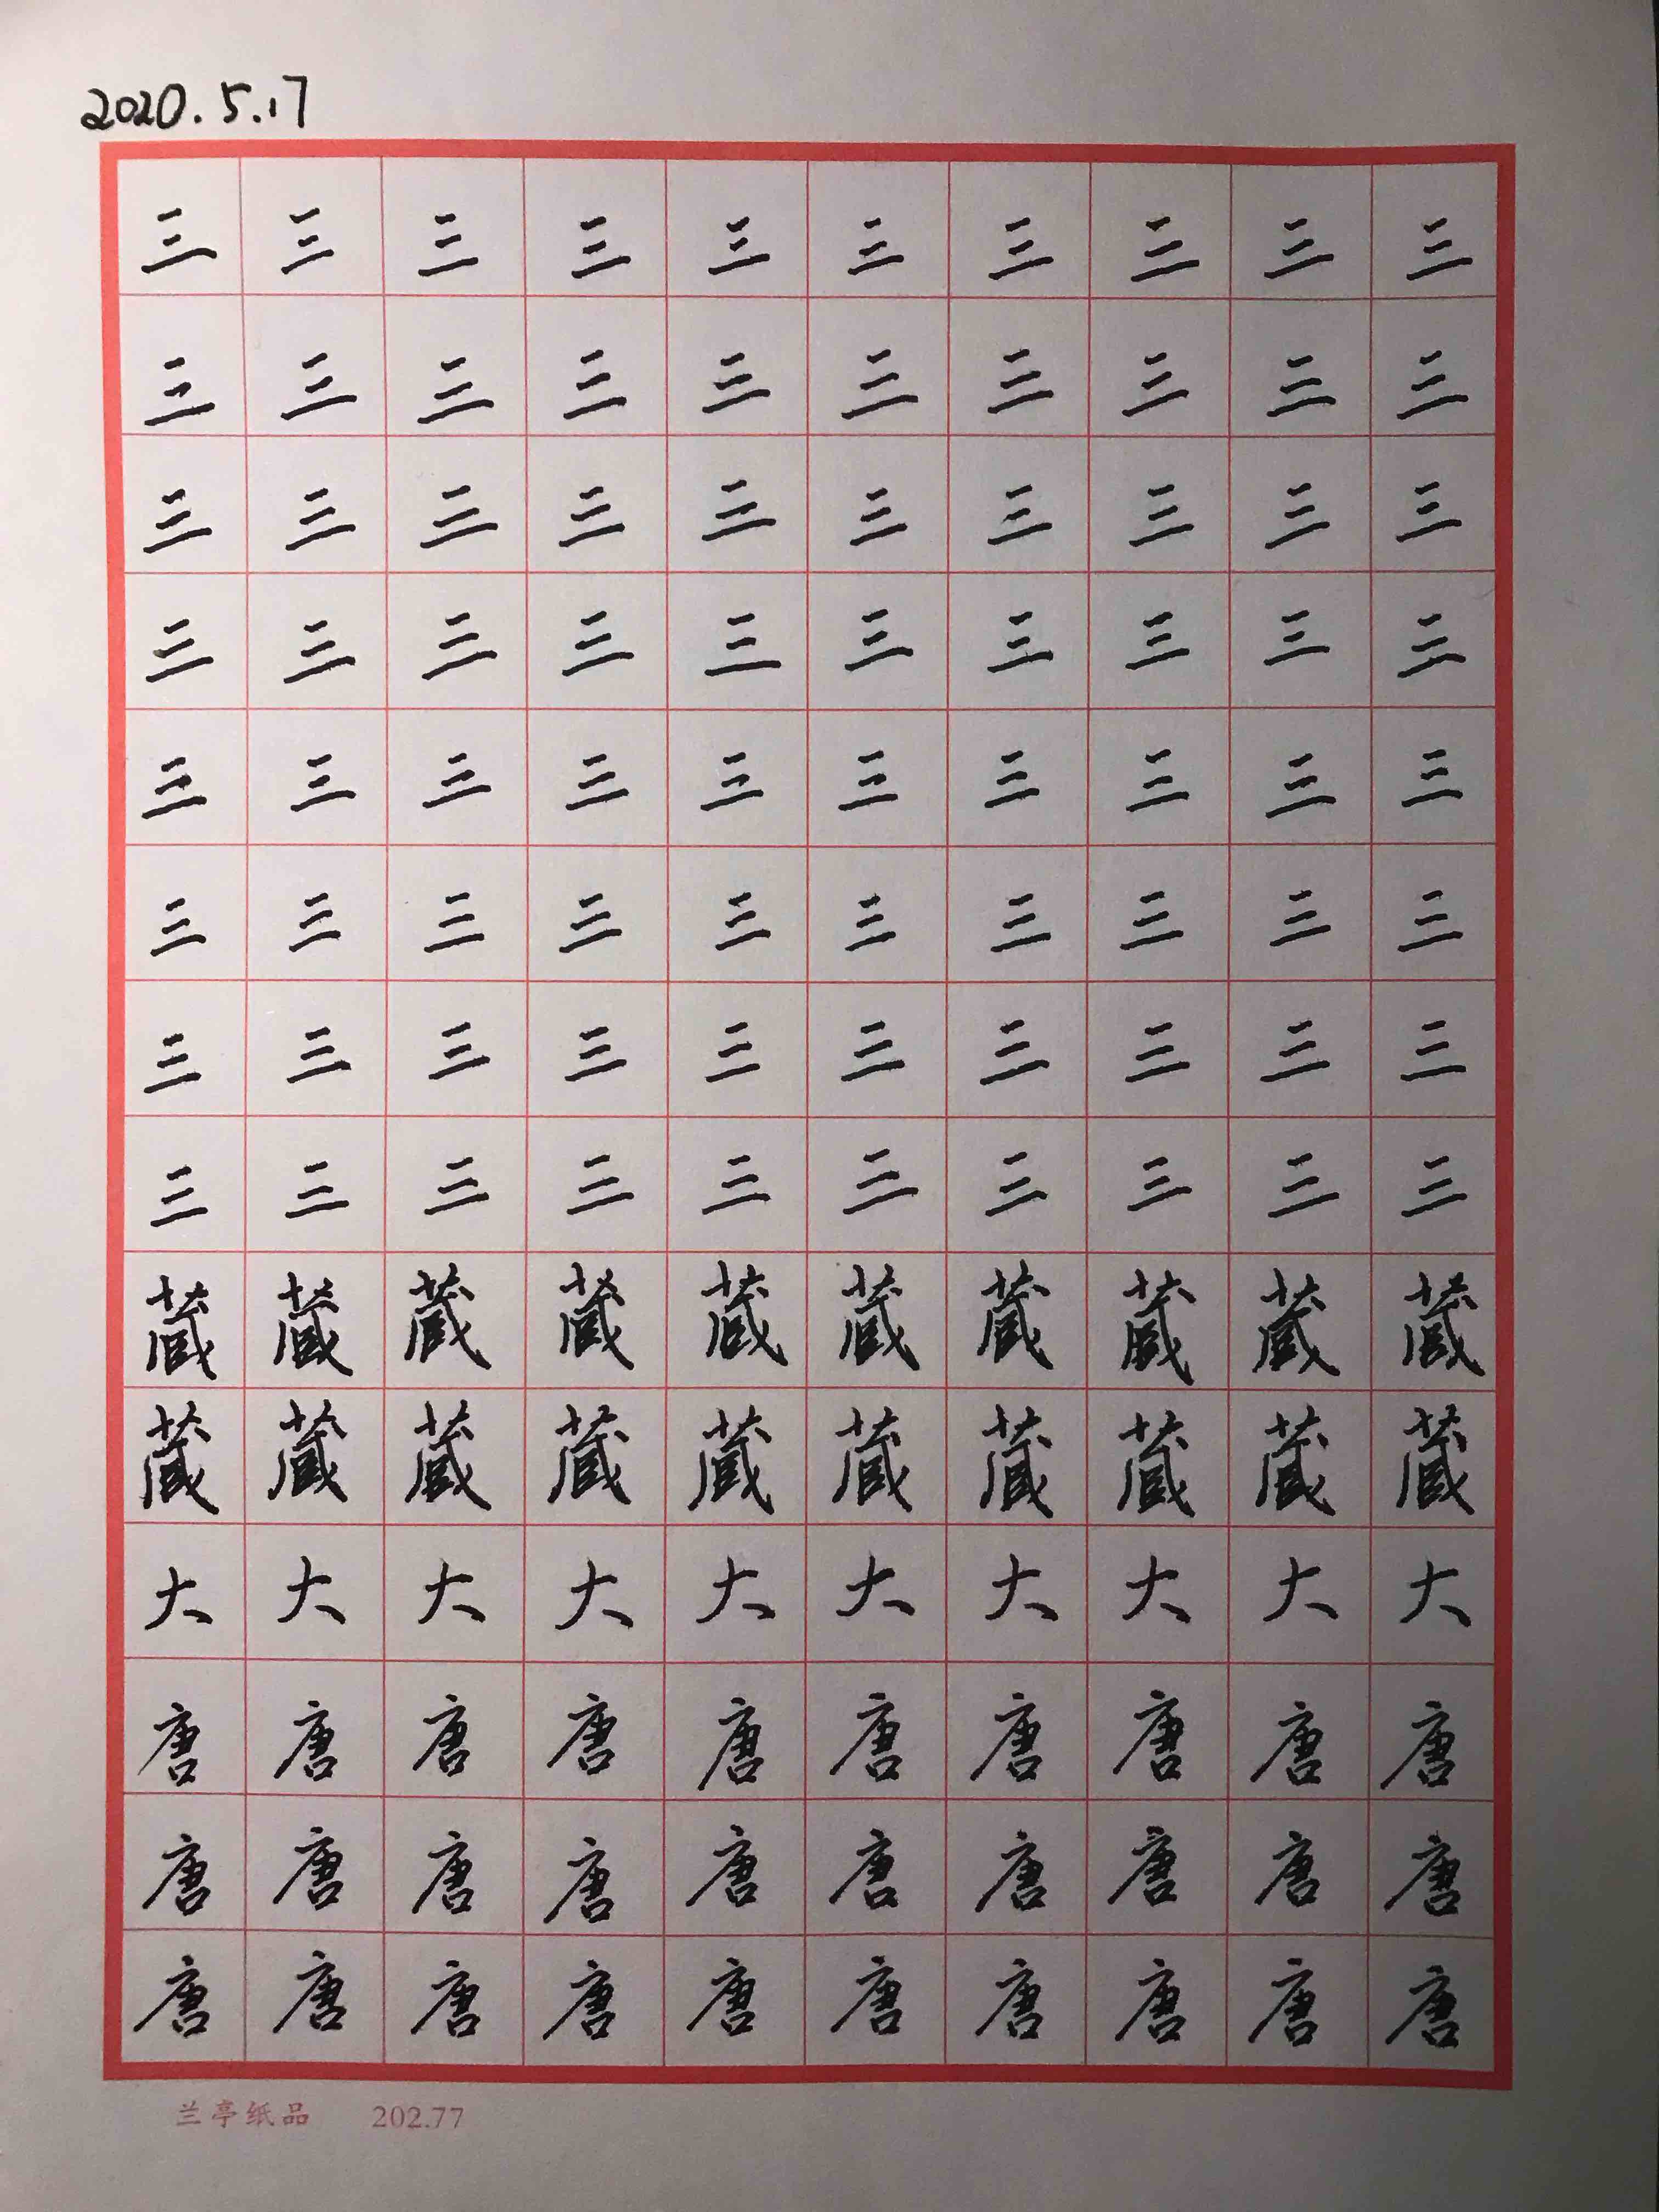 2020.5.17
三三三三三三三三三三
三三三三三三三三三三
三三三三三三三三三三
三三三三三三三三三三
三三三三三三三三三三
三三三三三三三三三三
三三三三三三三三三三
三三三三三三三三三三
蔵蔵蔵蔵蔵蔵蔵蔵蔵蔵
蔵蔵蔵蔵蔵蔵蔵蔵蔵蔵
大大大大大大大大大大
唐唐唐唐唐唐唐唐唐唐
唐唐唐唐唐唐唐唐唐唐
唐唐唐唐唐唐唐唐唐唐
兰亭纸品 202.77